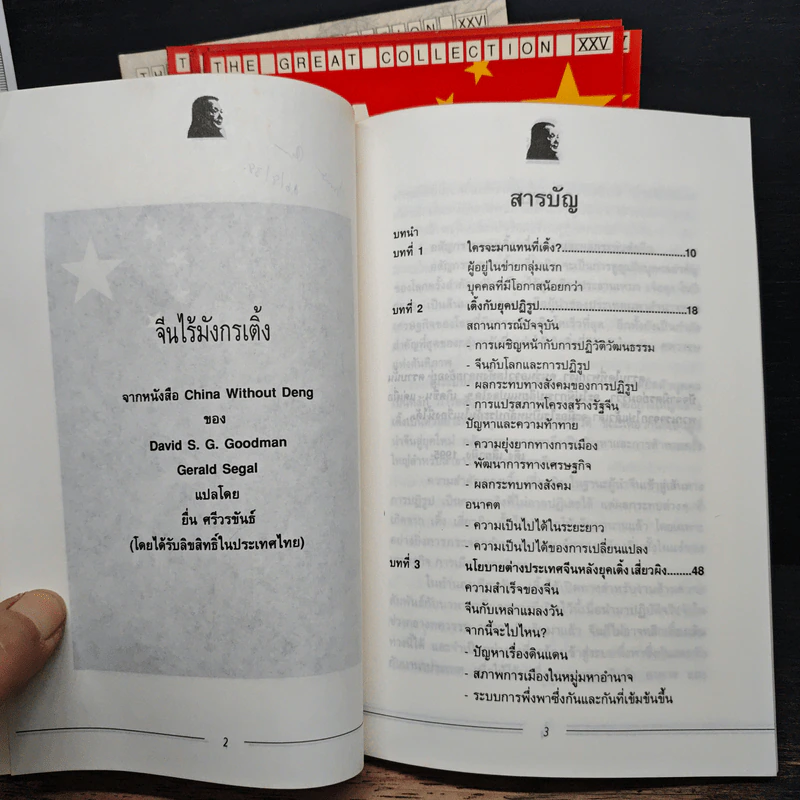 THE GREAT COLLECTION XXVI
THE GREAT COLLECTION XXV
จีนไร้มังกรเติ้ง
จากหนังสือ China Without Deng
ของ
David S. G. Goodman
Gerald Segal
แปลโดย
ยื่น ศรีวรขันธ์
(โดยได้รับลิขสิทธิ์ในประเทศไทย)
2
สารบัญ
บทนำ
บทที่ 1 ใครจะมาแทนที่เติ้ง?..........10
ผู้อยู่ในข่ายกลุ่มแรก
บุคคลที่มีโอกาสน้อยกว่า
บทที่ 2 เติ้งกับยุคปฏิรูป..........18
สถานการณ์ปัจจุบัน
- การเผชิญหน้ากับการปฏิวัติวัฒนธรรม
- จีนกับโลกและการปฏิรูป
- ผลกระทบทางสังคมของการปฏิรูป
- การแปรสภาพโครงสร้างรัฐจีน
ปัญหาและความท้าทาย
- ความยุ่งยากทางการเมือง
- พัฒนาการทางเศรษฐกิจ
- ผลกระทบทางสังคม
อนาคต
- ความเป็นไปได้ในระยะยาว
- ความเป็นไปได้ของการเปลี่ยนแปลง
บทที่ 3 นโยบายต่างประเทศจีนหลังยุคเติ้ง เสี่ยวผิง........48
ความสำเร็จของจีน
จีนกับเหล่าแมลงวัน
จากนี้จะไปไหน?
- ปัญหาเรื่องดินแดน
- สภาพการเมืองในหมู่มหาอำนาจ
- ระบบการพึ่งพาซึ่งกันและกันที่เข้มข้นขึ้น
3